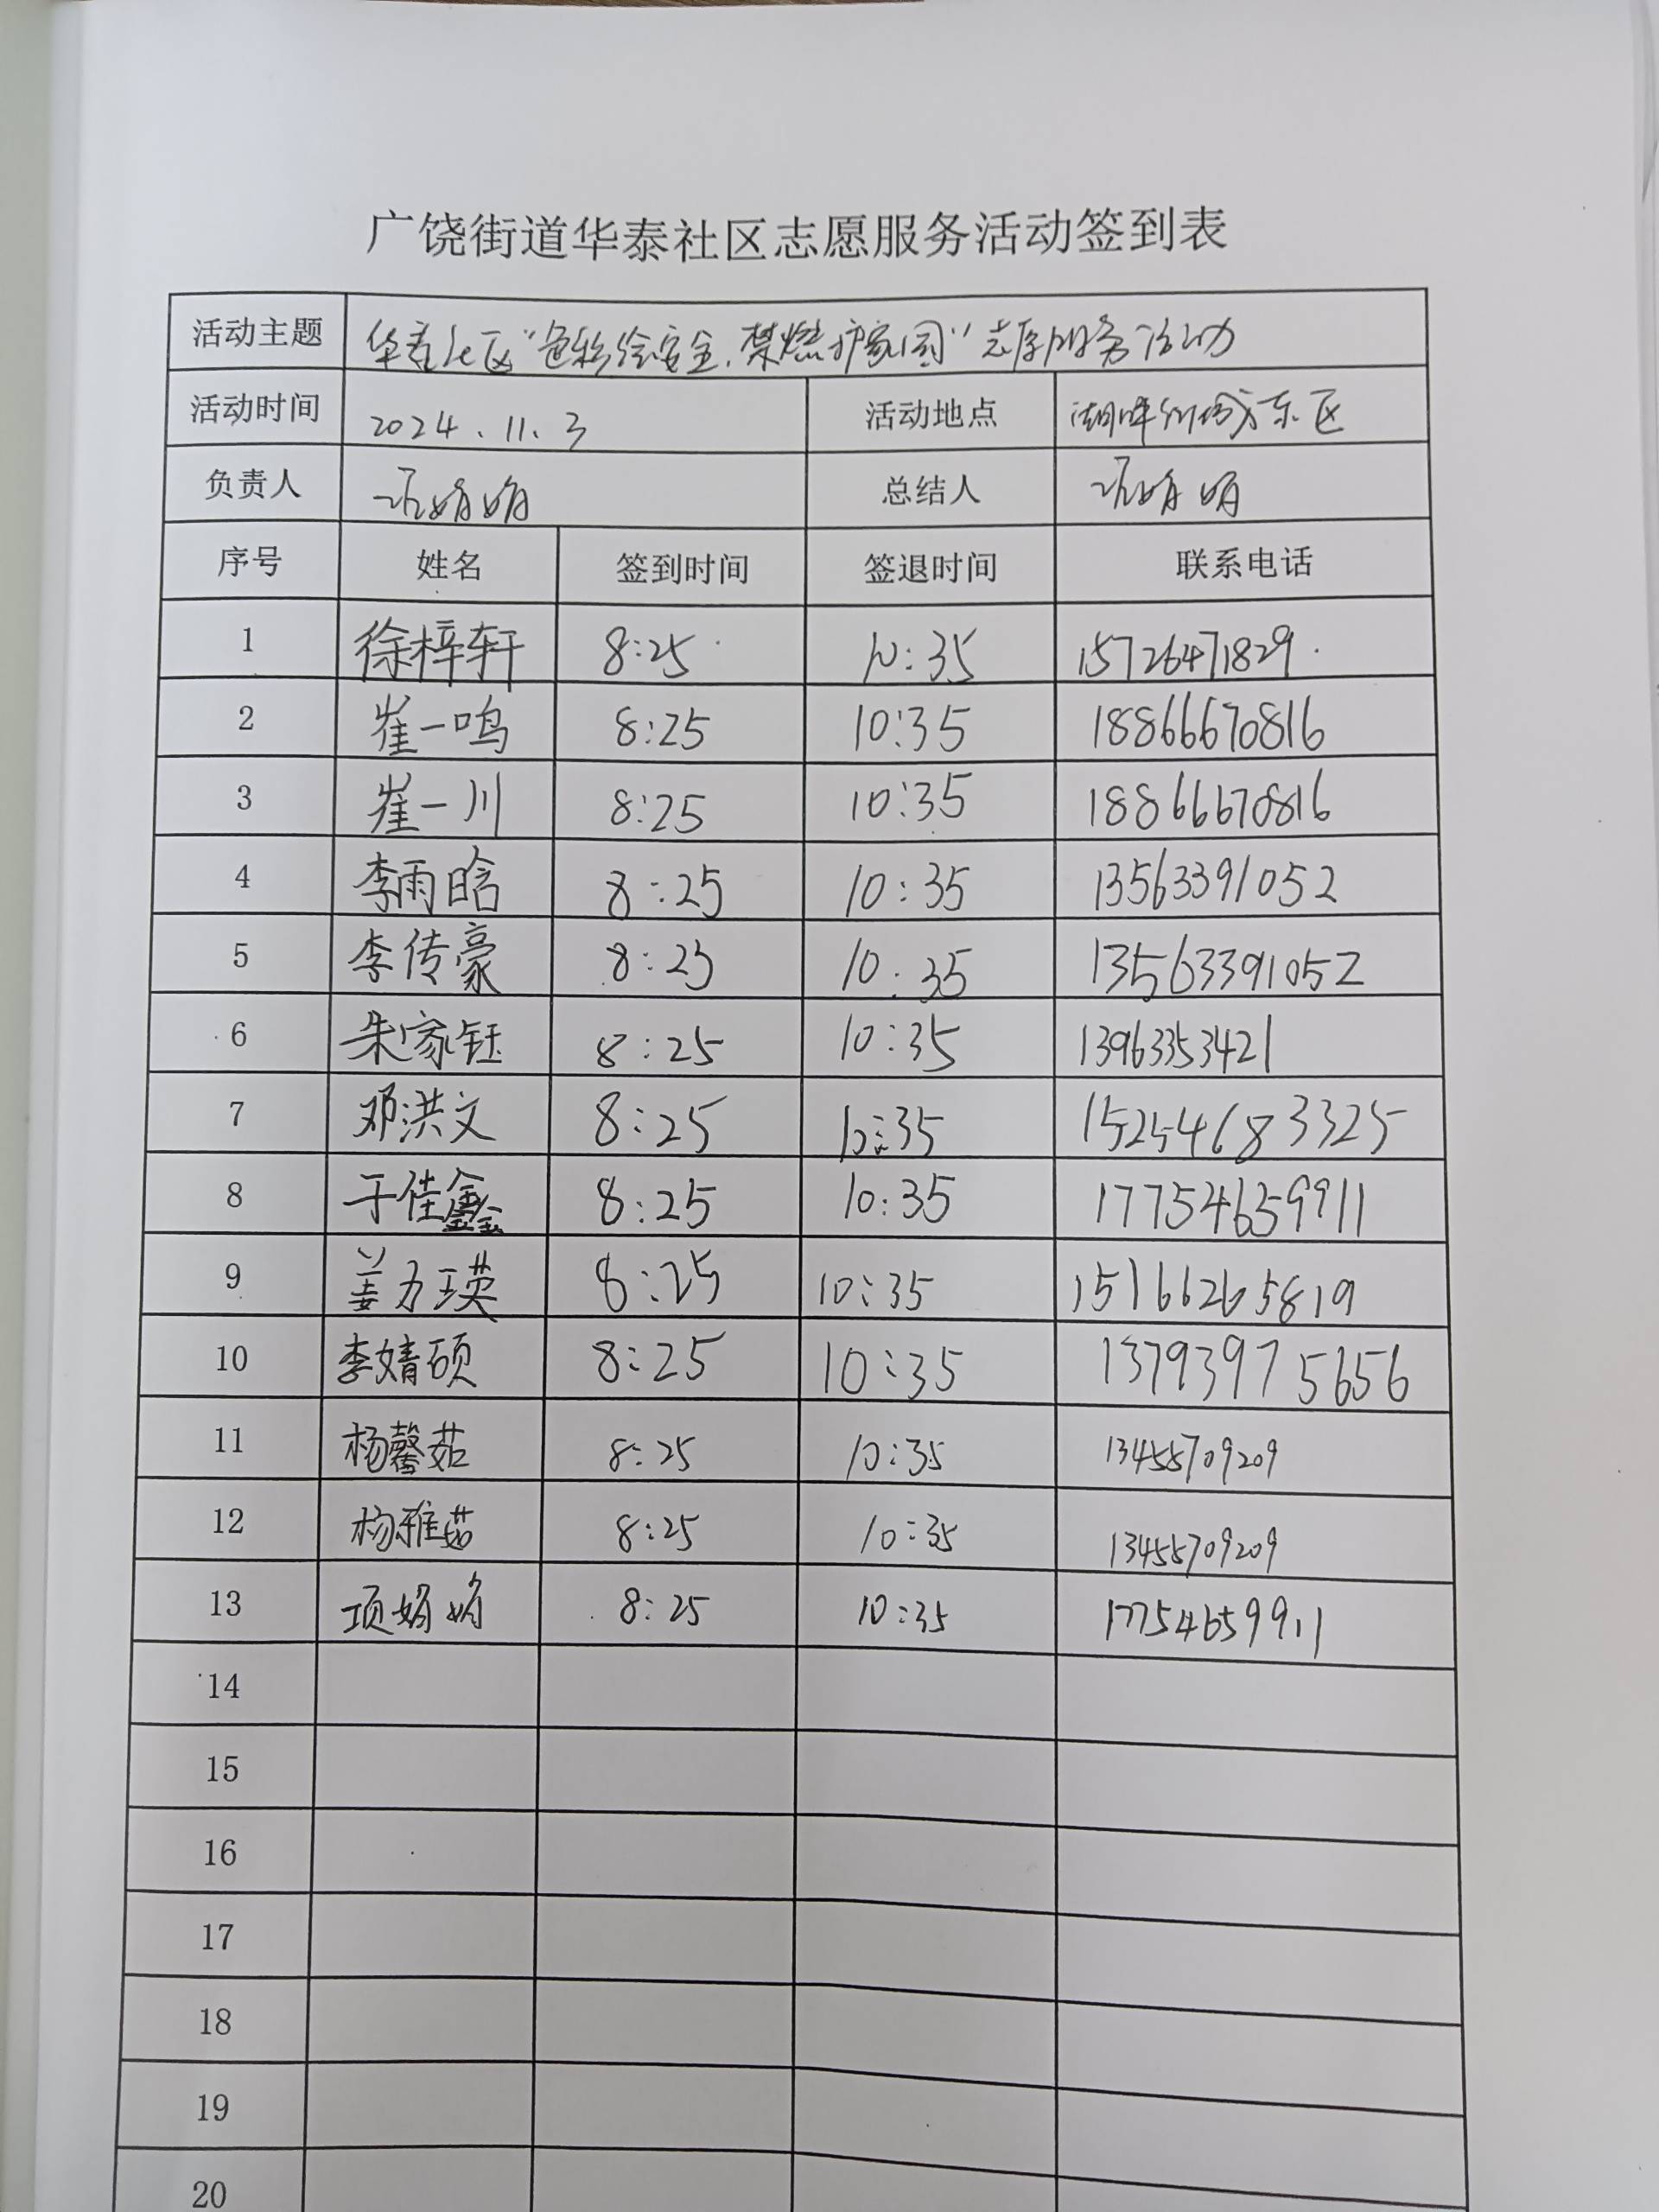 广饶街道华泰社区志愿服务活动签到表
活动主题 华泰社区"色彩绘安全，禁燃护家园"志愿服务活动
活动时间 2024.11.3 活动地点 东区
负责人 项娟娟 总结人 项娟娟
序号 姓名 签到时间 签退时间 联系电话
1 徐梓轩 8:25 10:35 15726471829
2 崔一鸣 8:25 10:35 18866670816
3 崔一川 8:25 10:35 18866670816
4 李雨晗 8:25 10:35 13563391052
5 李传豪 8:25 10:35 13563391052
6 朱家钰 8:25 10:35 13963353421
7 邓洪文 8:25 10:35 15254683325
8 于佳鑫 8:25 10:35 17754659911
9 姜力瑛 8:25 10:35 15166265819
10 李婧硕 8:25 10:35 13793975656
11 杨馨茹 8:25 10:35 13455709209
12 杨雅茹 8:25 10:35 13455709209
13 项娟娟 8:25 10:35 17754659911
14
15
16
17
18
19
20